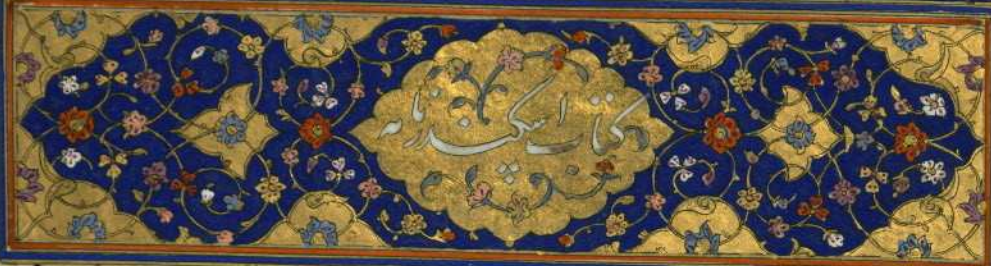 کتاب اسکندرنامه